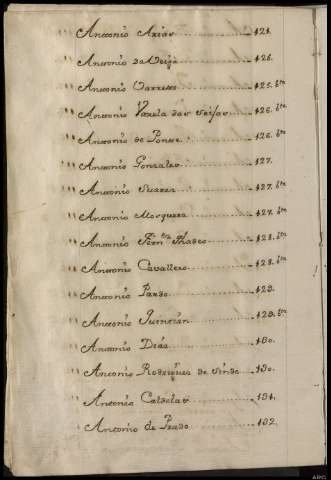 Antonio Arias 121.
Antonio da Veiga 126.
Antonio Varreto 125. bto
Antonio Varela das Seixas 126. bto
Antonio de Ponse 126. bto
Antonio Gonzales 127.
Antonio Suares 127. bto
Antonio Marquez 127. bto
Antonio Fern.dez 128. bto
Antonio Cavallero 128. bto
Antonio Pardo 129.
Antonio 129. bto
Antonio Dias 130.
Antonio Rodrigues de 130.
Antonio 131.
Antonio de Prado 132.